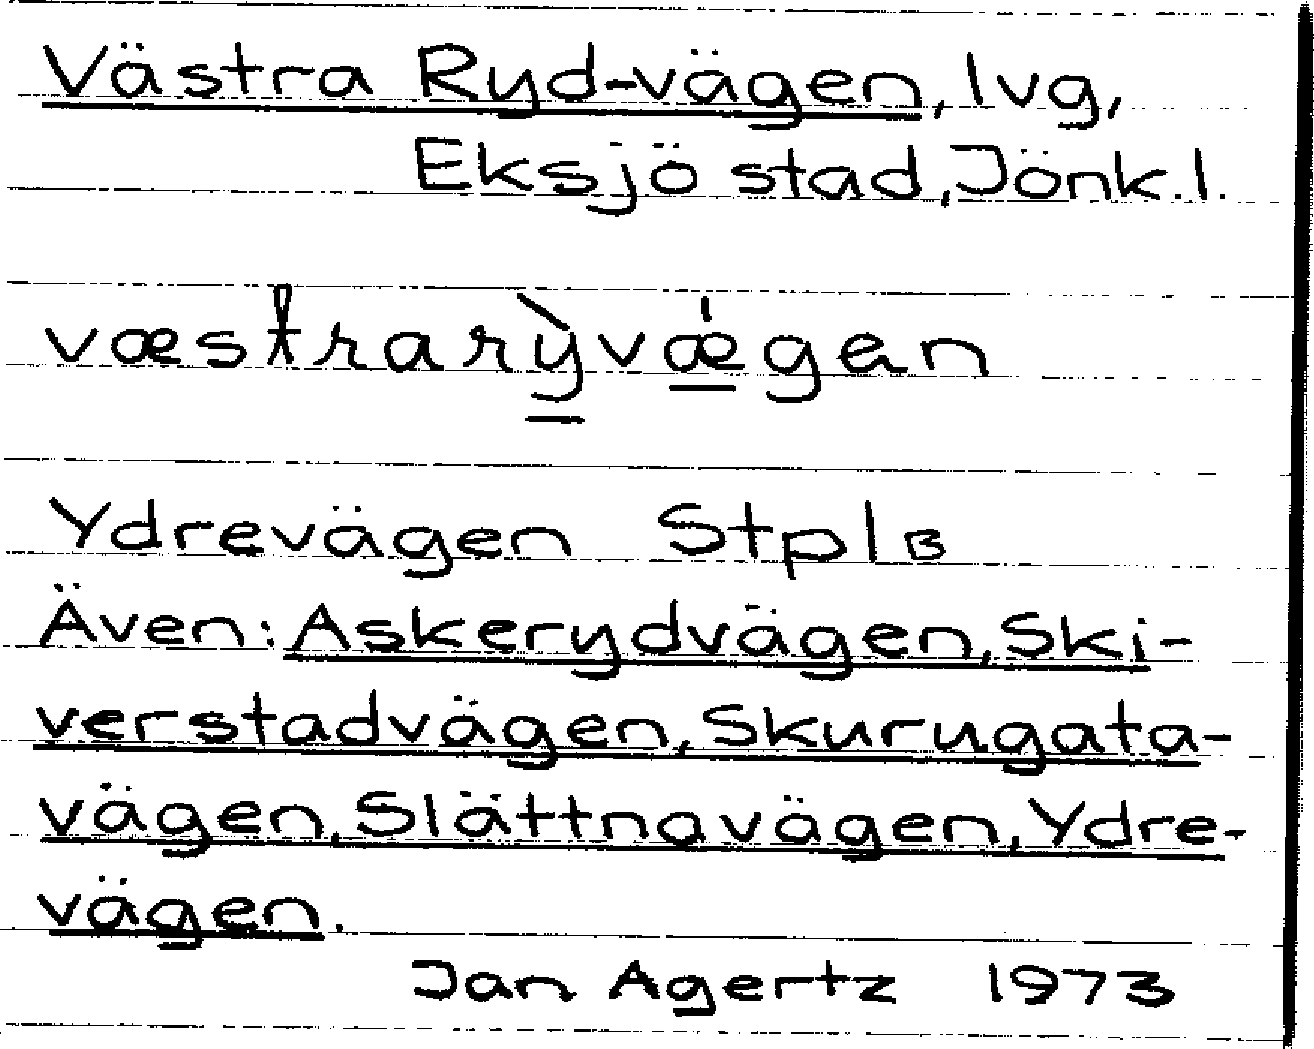 Västra Ryd-vägen, lvg,
Eksjö stad, Jönk.l.
væstrarỳvǽgen
Ydrevägen StplB
Även: Askerydvägen, Ski-
verstadvägen, Skurugata-
vägen, Slättnavägen, Ydre-
vägen.
Jan Agertz 1973